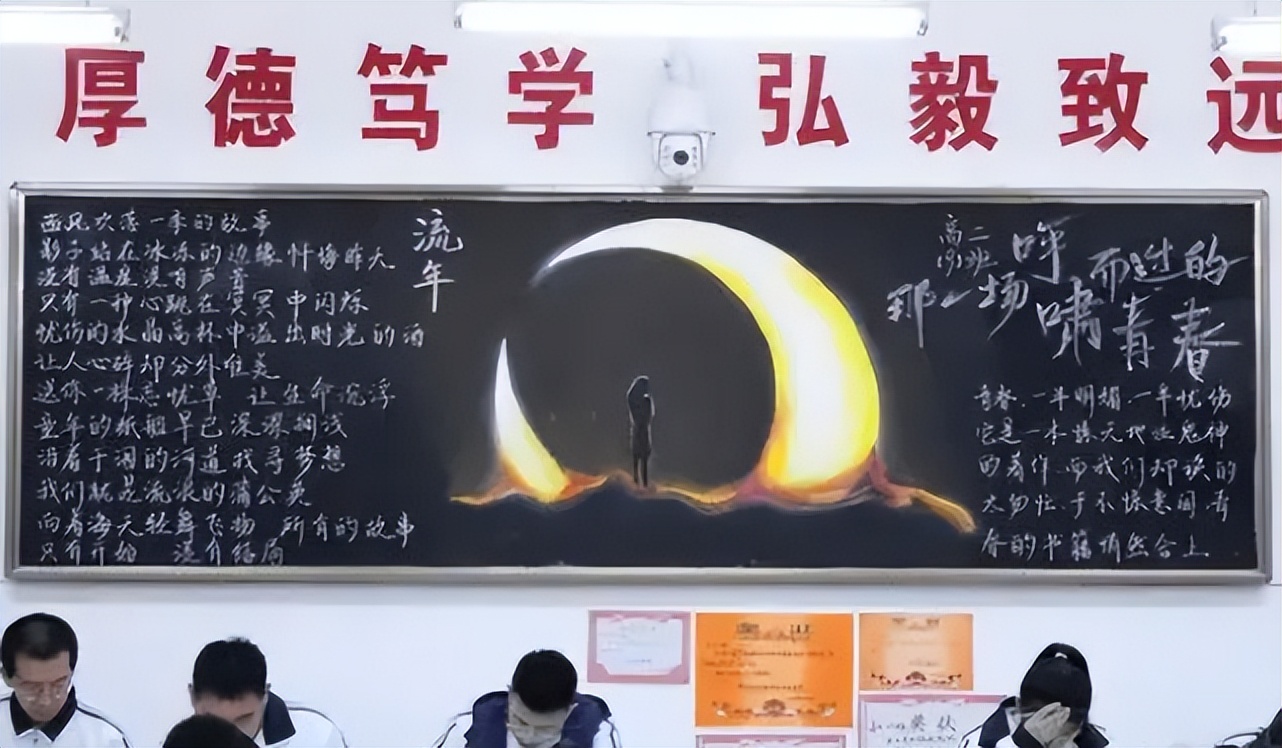 厚德笃学 弘毅致远
流年
西风吹落一季的故事
影子站在冰冻的边缘忏悔昨天
没有温度没有声音
只有一种心跳在冥冥中闪烁
忧伤的水晶高杯中溢出时光的酒
让人心碎却分外唯美
送你一株忘忧草 让生命沉浮
童年的纸船早已深深搁浅
沿着干涸的河道找寻梦想
我们就是流浪的蒲公英
向着海天轻舞飞扬 所有的故事
只有开始 没有结局
高二
班
那一场呼啸而过的青春
青春.一半明媚.一半忧伤
它是一本惊天地泣鬼神
的著作.而我们却读的
太匆忙.于不惊意间.青
春的书籍悄然合上
奖状